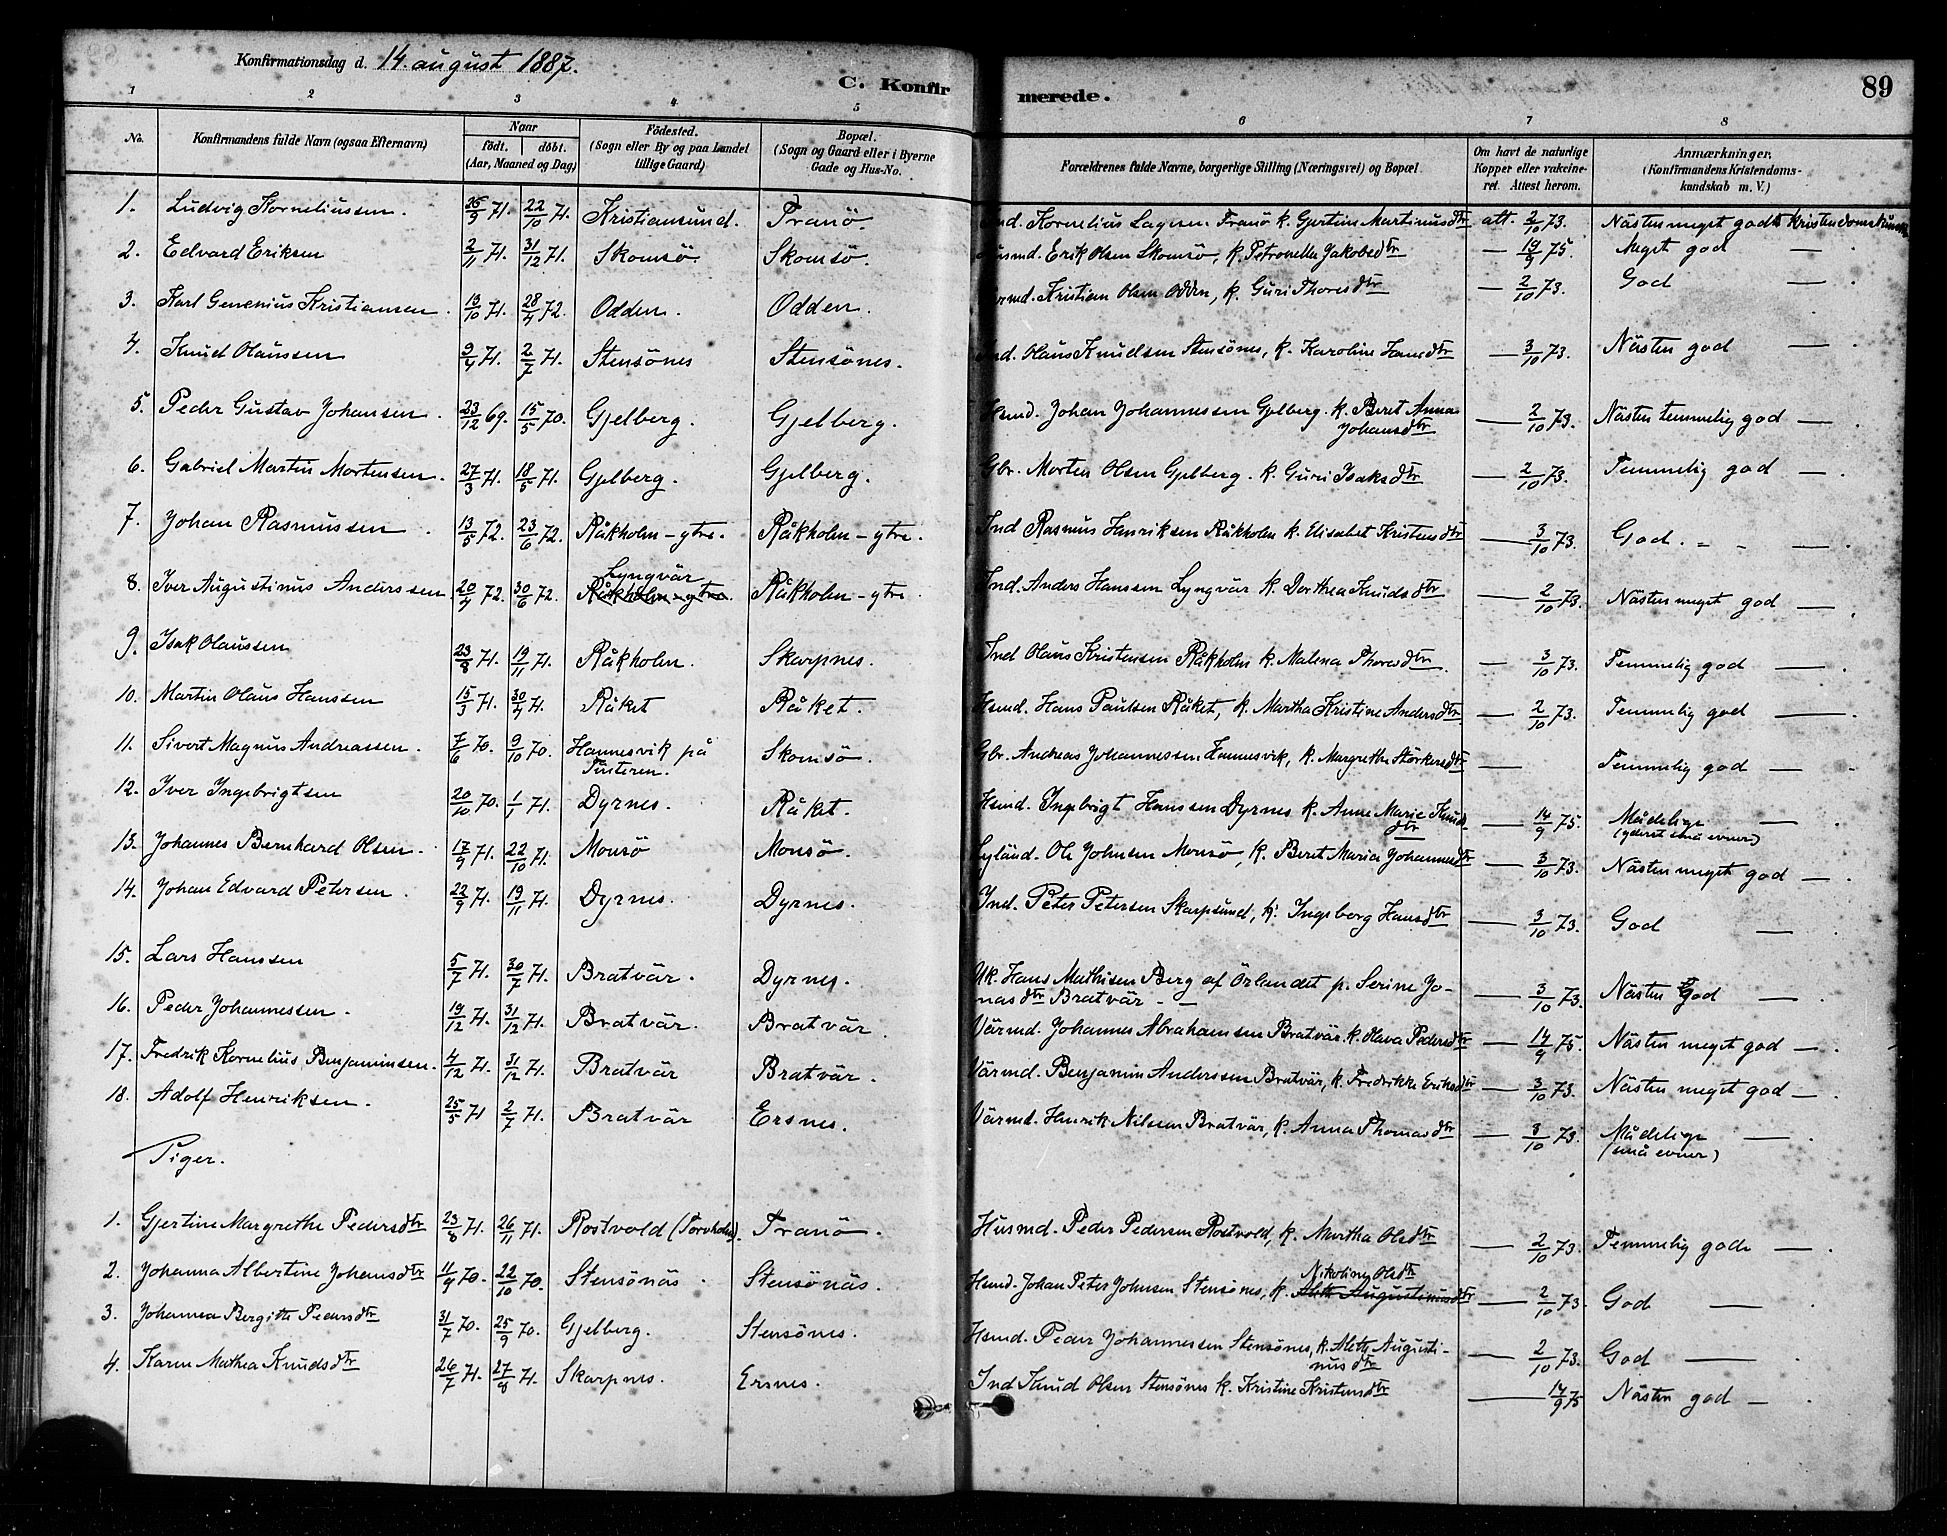 Konfirmationsdag d. 14. august 1887.
C. Konfirmerede.
89
1 2 3 4 5 6 7 8
No. Konfirmandens fulde Navn (ogsaa Efternavn) Naar födt. döbt. (Aar, Maaned og Dag) Födested. (Sogn eller By og paa Landet tillige Gaard) Bopæl. (Sogn og Gaard eller i Byerne Gade og Hus-No. Forældrenes fulde Navne, borgerlige Stilling (Næringsvei) og Bopæl Om havt de naturlige Kopper eller vakcineret. Attest herom. Anmærkninger. (Konfirmandens Kristendomskundskab m. V.)
1. Ludvig Korneliussen. 25/9 71. 22/10 71. Kristiansund. Tranö. Ind. Kornelius Tranö k. Gjertine Martinusdtr att. 2/10 73. Nästen meget godt Kristendomskundsk
2. Edvard Eriksen 2/11 71. 31/12 71. Skomsö. Skomsö. Husmd. Erik Olsen Skomsö, k. Petronella Jakobsdtr — 19/9 75. Meget god — .
3. Karl Genenius Kristiansen. 13/10 71. 28/4 72. Odden. Odden. Kristian Olsen Odden, k. Guri Thoresdtr — 2/10 73. God — .
4. Knud Olaussen 9/4 71. 2/7 71. Stensönes Stensönes. Ind. Olaus Knudsen Stensönes, k. Karoline Hansdtr — 3/10 73. Nästen god — .
5. Peder Gustav Johansen. 23/12 69. 15/5 70. Gjelberg. Gjelberg. Hsmd. Johan Johannessen Gjelberg. k. Beret Anna Johansdtr — 2/10 73. Nästen temmelig god — .
6. Gabriel Martin Mortensen. 27/3 71. 18/5 71. Gjelberg. Gjelberg. Gbr. Morten Olsen Gjelberg. k. Guri Isaksdtr — 2/10 73. Temmelig god — .
7. Johan Rasmussen. 13/5 72. 23/6 72. Råkholm-ytre. Råkholm-ytre. Ind Rasmus Henriksen Råkholm k. Elisabet Kristensdtr — 3/10 73. God. — .
8. Iver Augustinus Anderssen 20/4 72. 30/6 72. Lyngvär Råkholm-ytre. Råkholm-ytre. Ind. Anders Hanssen Lyngvär k. Dorthea Knudsdtr — 2/10 73. Nästen meget god — .
9. Isak Olaussen 23/8 71. 19/11 71. Råkholm. Skarpnes. Ind Olaus Kristensen Råkholm k. Malena Thoresdtr. — 3/10 73. Temmelig god — .
10. Martin Olaus Hanssen 15/3 71. 30/4 71. Råket Råket. Hsmd. Hans Paulsen Råket, k. Martha Kristine Andersdtr — 2/10 73. Temmelig god — .
11. Sivert Magnus Andreassen. 7/6 70. 9/10 70. Hannesvik på Tusteren. Skomsö. Gbr. Andreas Johannessen Hannesvik, k. Margrethe Störkersdtr — Temmelig god — .
12. Iver Ingebrigtsen 20/10 70. 1/1 71. Dyrnes. Råket. Hsmd. Ingebrigt Hanssen Dyrnes k. Anne Marie Knudsdtr — 14/9 75. Mådelige — (yderst små evner)
13. Johannes Bernhard Olsen. 17/9 71. 22/10 71. Monsö Monsö. Ole Johnsen Monsö, k. Beret Maria Johannesdtr — 3/10 73. Nästen meget god — .
14. Johan Edvard Petersen. 22/9 71. 19/11 71. Dyrnes. Dyrnes. Ind. Peter Petersen Skarpsund, k. Ingeborg Hansdtr — 3/10 73. God — .
15. Lars Hanssen 5/7 71. 30/7 71. Bratvär. Dyrnes. Uk. Hans Mathisen Berg af Örlandet p. Serine Jonasdtr Bratvär — 3/10 73. Nästen God — .
16. Peder Johannessen. 19/12 71. 31/12 71. Bratvär. Bratvär. Värmd. Johannes Abrahamsen Bratvär. k. Olava Pedersdtr — 14/9 75. Nästen meget god — .
17. Fredrik Kornelius Benjaminsen. 4/12 71. 31/12 71. Bratvär Bratvär. Värmd. Benjamin Anderssen Bratvär, k. Fredrikke Eriksdtr — 3/10 73. Nästen meget god — .
18. Adolf Henriksen. 25/5 71 2/7 71. Bratvär Ersnes. Värmd. Henrik Nilssen Bratvär, k. Anna Thomasdtr — 3/10 73. Mådelige — . (små evner)
Piger.
1. Gjertine Margrethe Pedersdtr 23/8 71. 26/11 71. Rostvold (Torvholm). Tranö. Husmd. Peder Pedersen Rostvold, k. Martha Olsdtr — 2/10 73. Temmelig gode — .
2. Johanna Albertine Johansdtr 11/9 70. 22/10 70. Stensönäs. Stensönäs. Hsmd. Johan Peter Johnsen Stensönes, k. Nikoline Olsdtr Aleth Augustinusdtr — 2/10 73. God — .
3. Johanna Bergitte Pedersdtr 31/7 70. 25/9 70. Gjelberg. Stensönes. Hsmd. Peder Johannessen Stensönes, k. Aleth Augustinusdtr — 2/10 73. God — .
4. Karen Mathea Knudsdtr 26/7 71. 27/8 71. Skarpnes. Ersnes. Ind Knud Olsen Stensönes k. Kristine Kristensdtr — 14/9 75 Nästen god — .